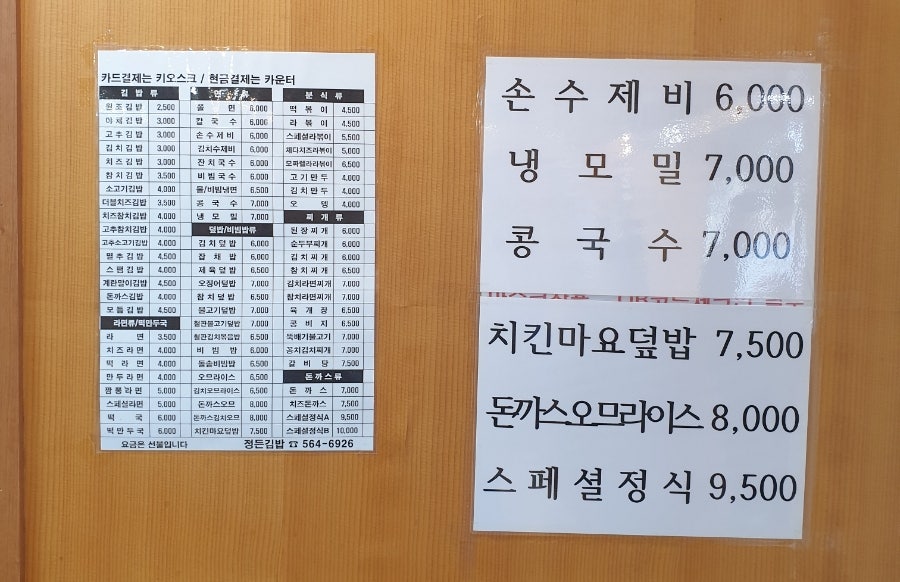 카드결제는 키오스크 / 현금결제는 카운터
김 밥 류
원조김밥 2,500
야채김밥 3,000
고추김밥 3,000
김치김밥 3,000
치즈김밥 3,000
참치김밥 3,500
소고기김밥 4,000
더블치즈김밥 3,500
치즈참치김밥 4,000
고추참치김밥 4,000
고추소고기김밥 4,000
멸추김밥 4,500
스팸김밥 4,000
계란말이김밥 4,500
돈까스김밥 4,000
모듬김밥 4,500
라면류/떡만두국
라 면 3,500
치즈라면 4,000
떡 라 면 4,000
만두라면 4,000
짬뽕라면 5,000
스페셜라면 5,000
떡 국 6,000
떡만두국 6,000
면 류
쫄 면 6,000
칼 국 수 6,000
손수제비 6,000
김치수제비 6,000
잔치국수 6,000
비빔국수 6,000
물/비빔냉면 6,500
콩 국 수 7,000
냉 모 밀 7,000
덮밥/비빔밥류
김치덮밥 6,000
잡 채 밥 6,000
제육덮밥 6,500
오징어덮밥 7,000
참치덮밥 6,500
불고기덮밥 7,000
철판불고기덮밥 7,000
철판김치볶음밥 6,500
비 빔 밥 6,000
돌솥비빔밥 6,500
오므라이스 6,500
김치오므라이스 6,500
돈까스오므 8,000
돈까스김치오므 8,000
치킨마요덮밥 7,500
분 식 류
떡 볶 이 4,500
라 볶 이 4,500
스페셜라볶이 5,500
체다치즈라볶이 5,000
모짜렐라라볶이 6,500
고기만두 4,000
김치만두 4,000
오 뎅 4,000
찌 개 류
된장찌개 6,000
순두부찌개 6,000
김치찌개 6,000
참치찌개 6,500
김치라면찌개 7,000
참치라면찌개 7,000
육 개 장 6,500
콩 비 지 6,500
뚝배기불고기 7,000
꽁치김치찌개 7,000
갈 비 탕 7,500
돈까스류
돈 까 스 7,000
치즈돈까스 7,500
스페셜정식A 9,500
스페셜정식B 10,000
요금은 선불입니다 정든김밥 ☎ 564-6926
손 수 제 비 6,000
냉 모 밀 7,000
콩 국 수 7,000
치킨마요덮밥 7,500
돈까스오므라이스 8,000
스 페 셜 정 식 9,500